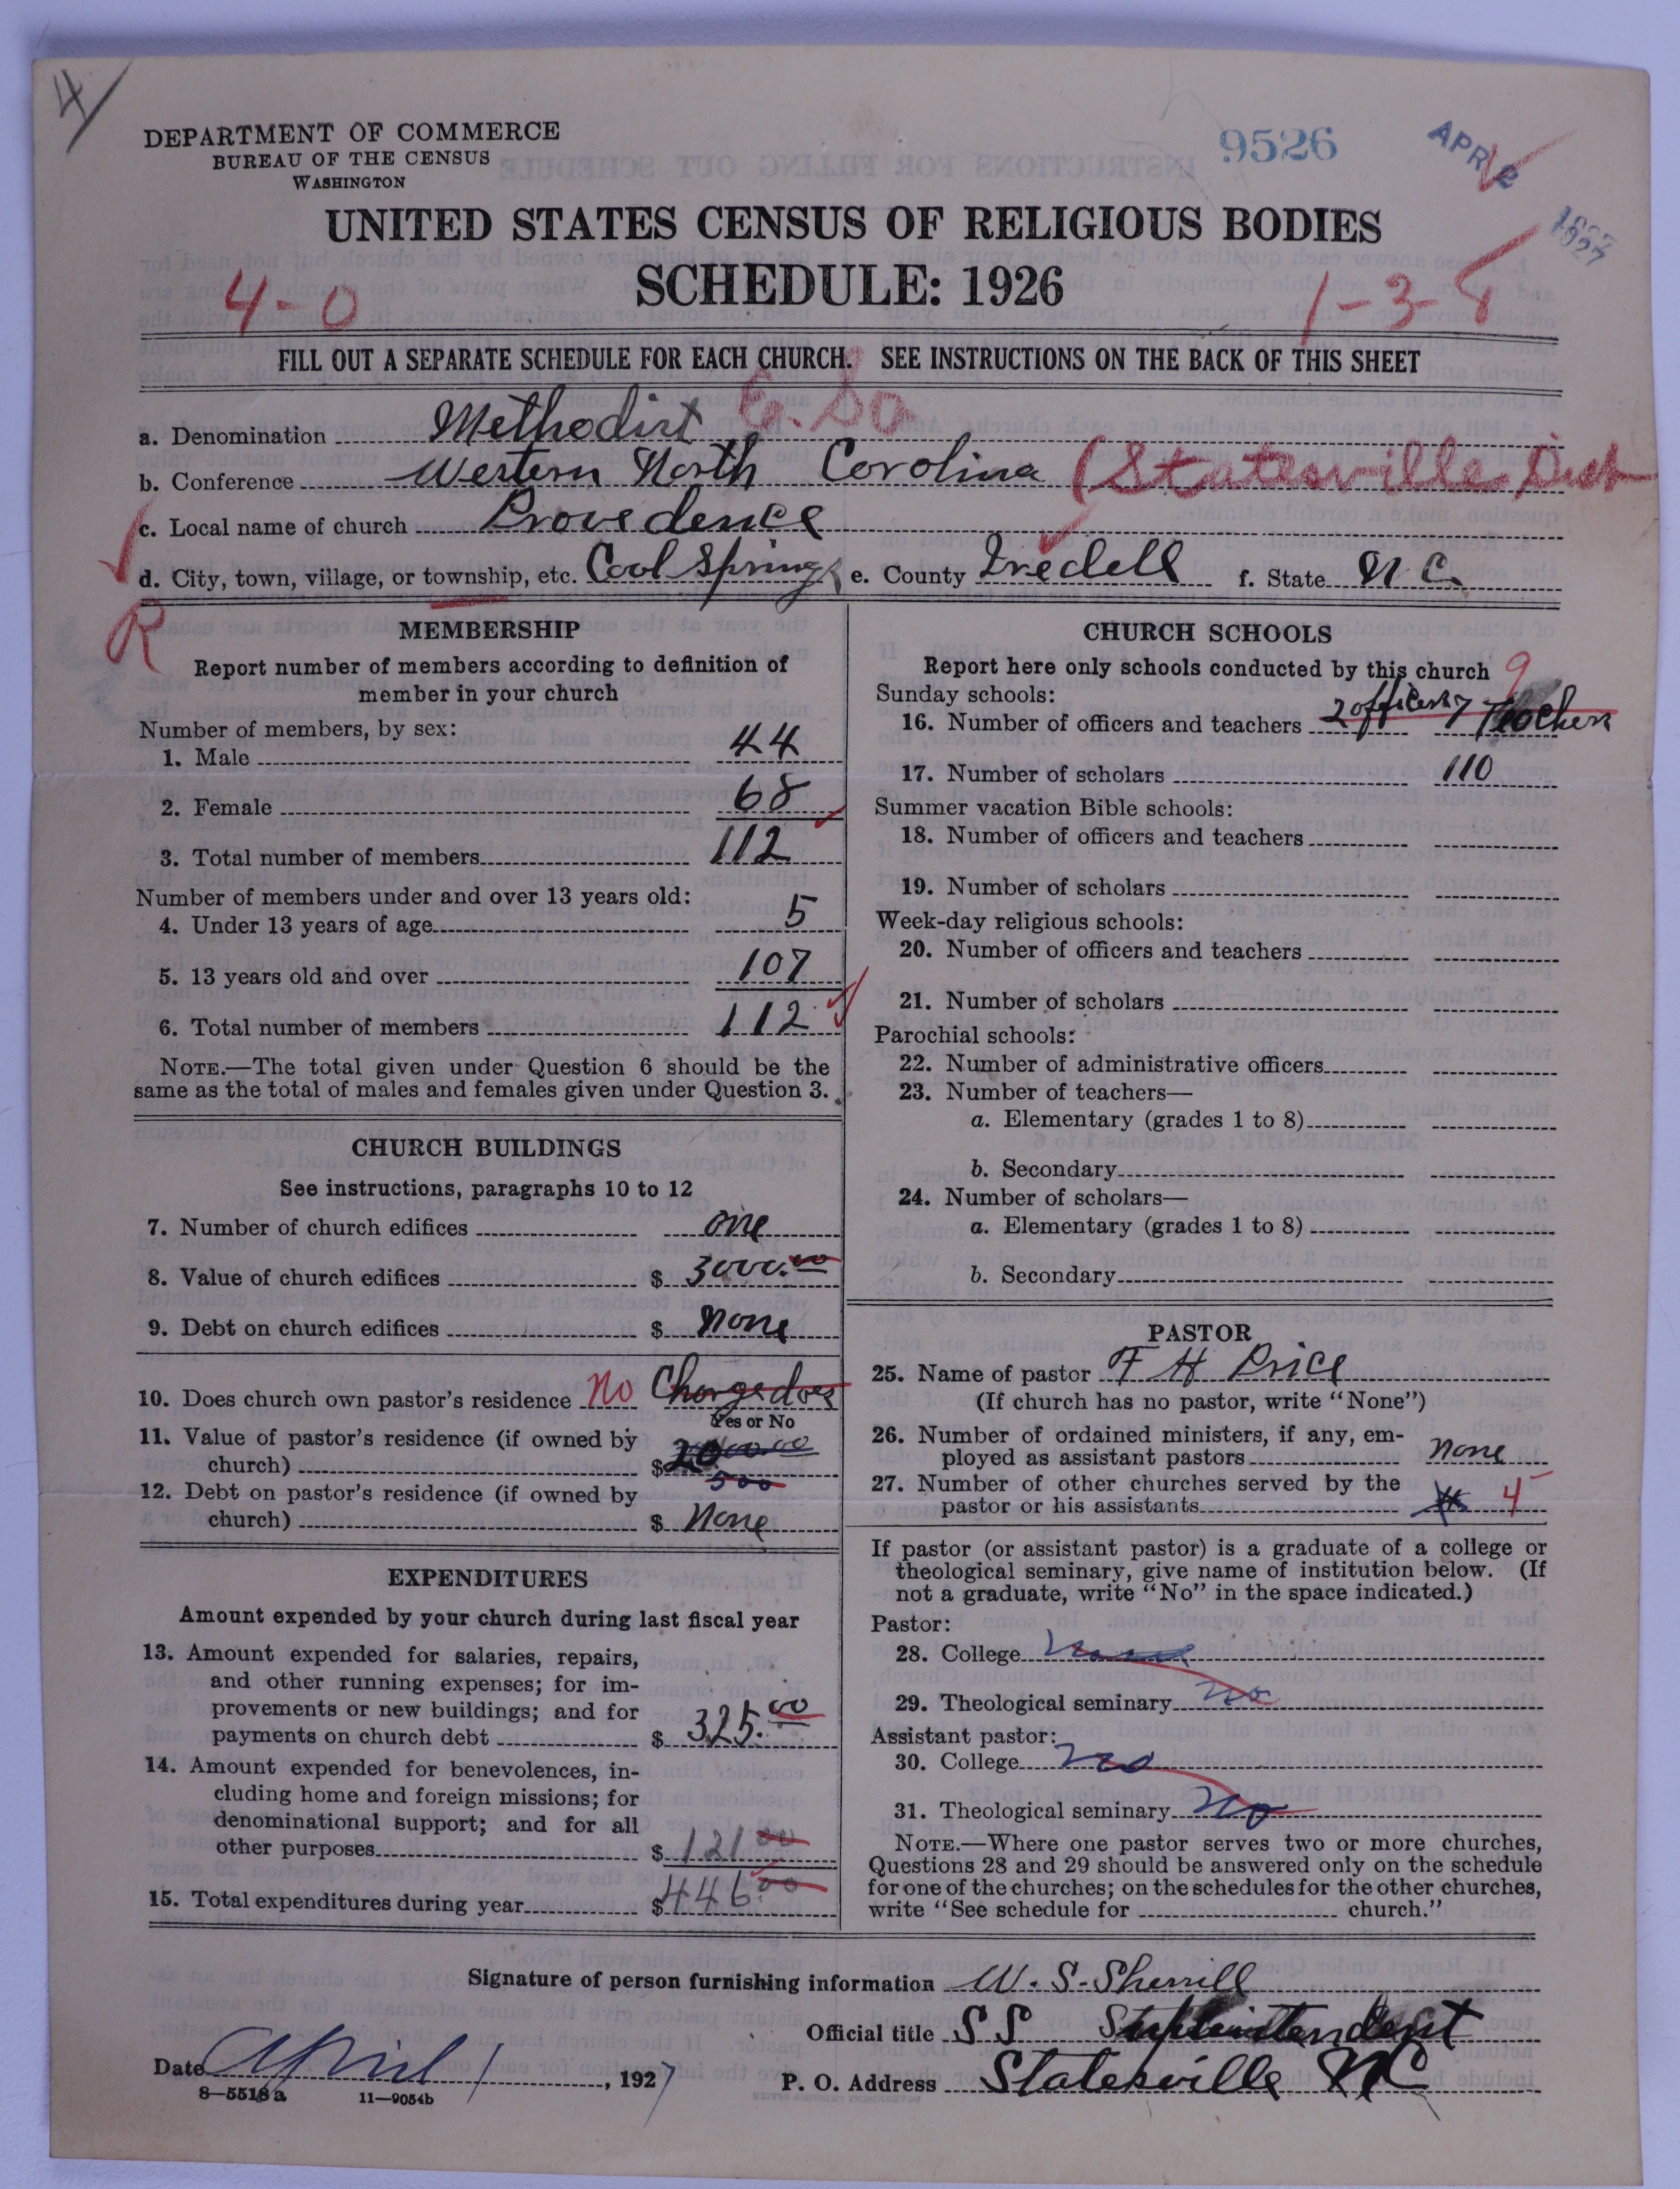 4
DEPARTMENT OF COMMERCE
BUREAU OF THE CENSUS
WASHINGTON
9526
APR 2
1927
UNITED STATES CENSUS OF RELIGIOUS BODIES
SCHEDULE: 1926
4-0
1-3-8
FILL OUT A SEPARATE SCHEDULE FOR EACH CHURCH. SEE INSTRUCTIONS ON THE BACK OF THIS SHEET
a. Denomination Methodist E. So
b. Conference Western North Carolina (Statesville Dist
c. Local name of church Providence
d. City, town, village, or township, etc. Cool Springs e. County Iredell f. State N C.
R
MEMBERSHIP
Report number of members according to definition of
member in your church
Number of members, by sex:
1. Male 44
2. Female 68
3. Total number of members 112
Number of members under and over 13 years old:
4. Under 13 years of age 5
5. 13 years old and over 107
6. Total number of members 112
NOTE.—The total given under Question 6 should be the
same as the total of males and females given under Question 3.
CHURCH BUILDINGS
See instructions, paragraphs 10 to 12
7. Number of church edifices one
8. Value of church edifices $ 3000.00
9. Debt on church edifices $ None
10. Does church own pastor's residence No Charge does
Yes or No
11. Value of pastor's residence (if owned by
church) $ 2000.00
500
12. Debt on pastor's residence (if owned by
church) $ None
EXPENDITURES
Amount expended by your church during last fiscal year
13. Amount expended for salaries, repairs,
and other running expenses; for im-
provements or new buildings; and for
payments on church debt $ 325.00
14. Amount expended for benevolences, in-
cluding home and foreign missions; for
denominational support; and for all
other purposes $ 121 00
15. Total expenditures during year $ 446.00
CHURCH SCHOOLS
Report here only schools conducted by this church
9
Sunday schools:
16. Number of officers and teachers 2 officers 7 Teachers
17. Number of scholars 110
Summer vacation Bible schools:
18. Number of officers and teachers
19. Number of scholars
Week-day religious schools:
20. Number of officers and teachers
21. Number of scholars
Parochial schools:
22. Number of administrative officers
23. Number of teachers—
a. Elementary (grades 1 to 8)
b. Secondary
24. Number of scholars—
a. Elementary (grades 1 to 8)
b. Secondary
PASTOR
25. Name of pastor F H Price
(If church has no pastor, write "None")
26. Number of ordained ministers, if any, em-
ployed as assistant pastors none
27. Number of other churches served by the
pastor or his assistants 4
If pastor (or assistant pastor) is a graduate of a college or
theological seminary, give name of institution below. (If
not a graduate, write "No" in the space indicated.)
Pastor:
28. College
29. Theological seminary no
Assistant pastor:
30. College no
31. Theological seminary No
NOTE.—Where one pastor serves two or more churches,
Questions 28 and 29 should be answered only on the schedule
for one of the churches; on the schedules for the other churches,
write "See schedule for church."
Signature of person furnishing information W. S. Sherrill
Official title S S Superintendent
Date April 1, 1927
P. O. Address Statesville N C
8-5518 a 11-9054b